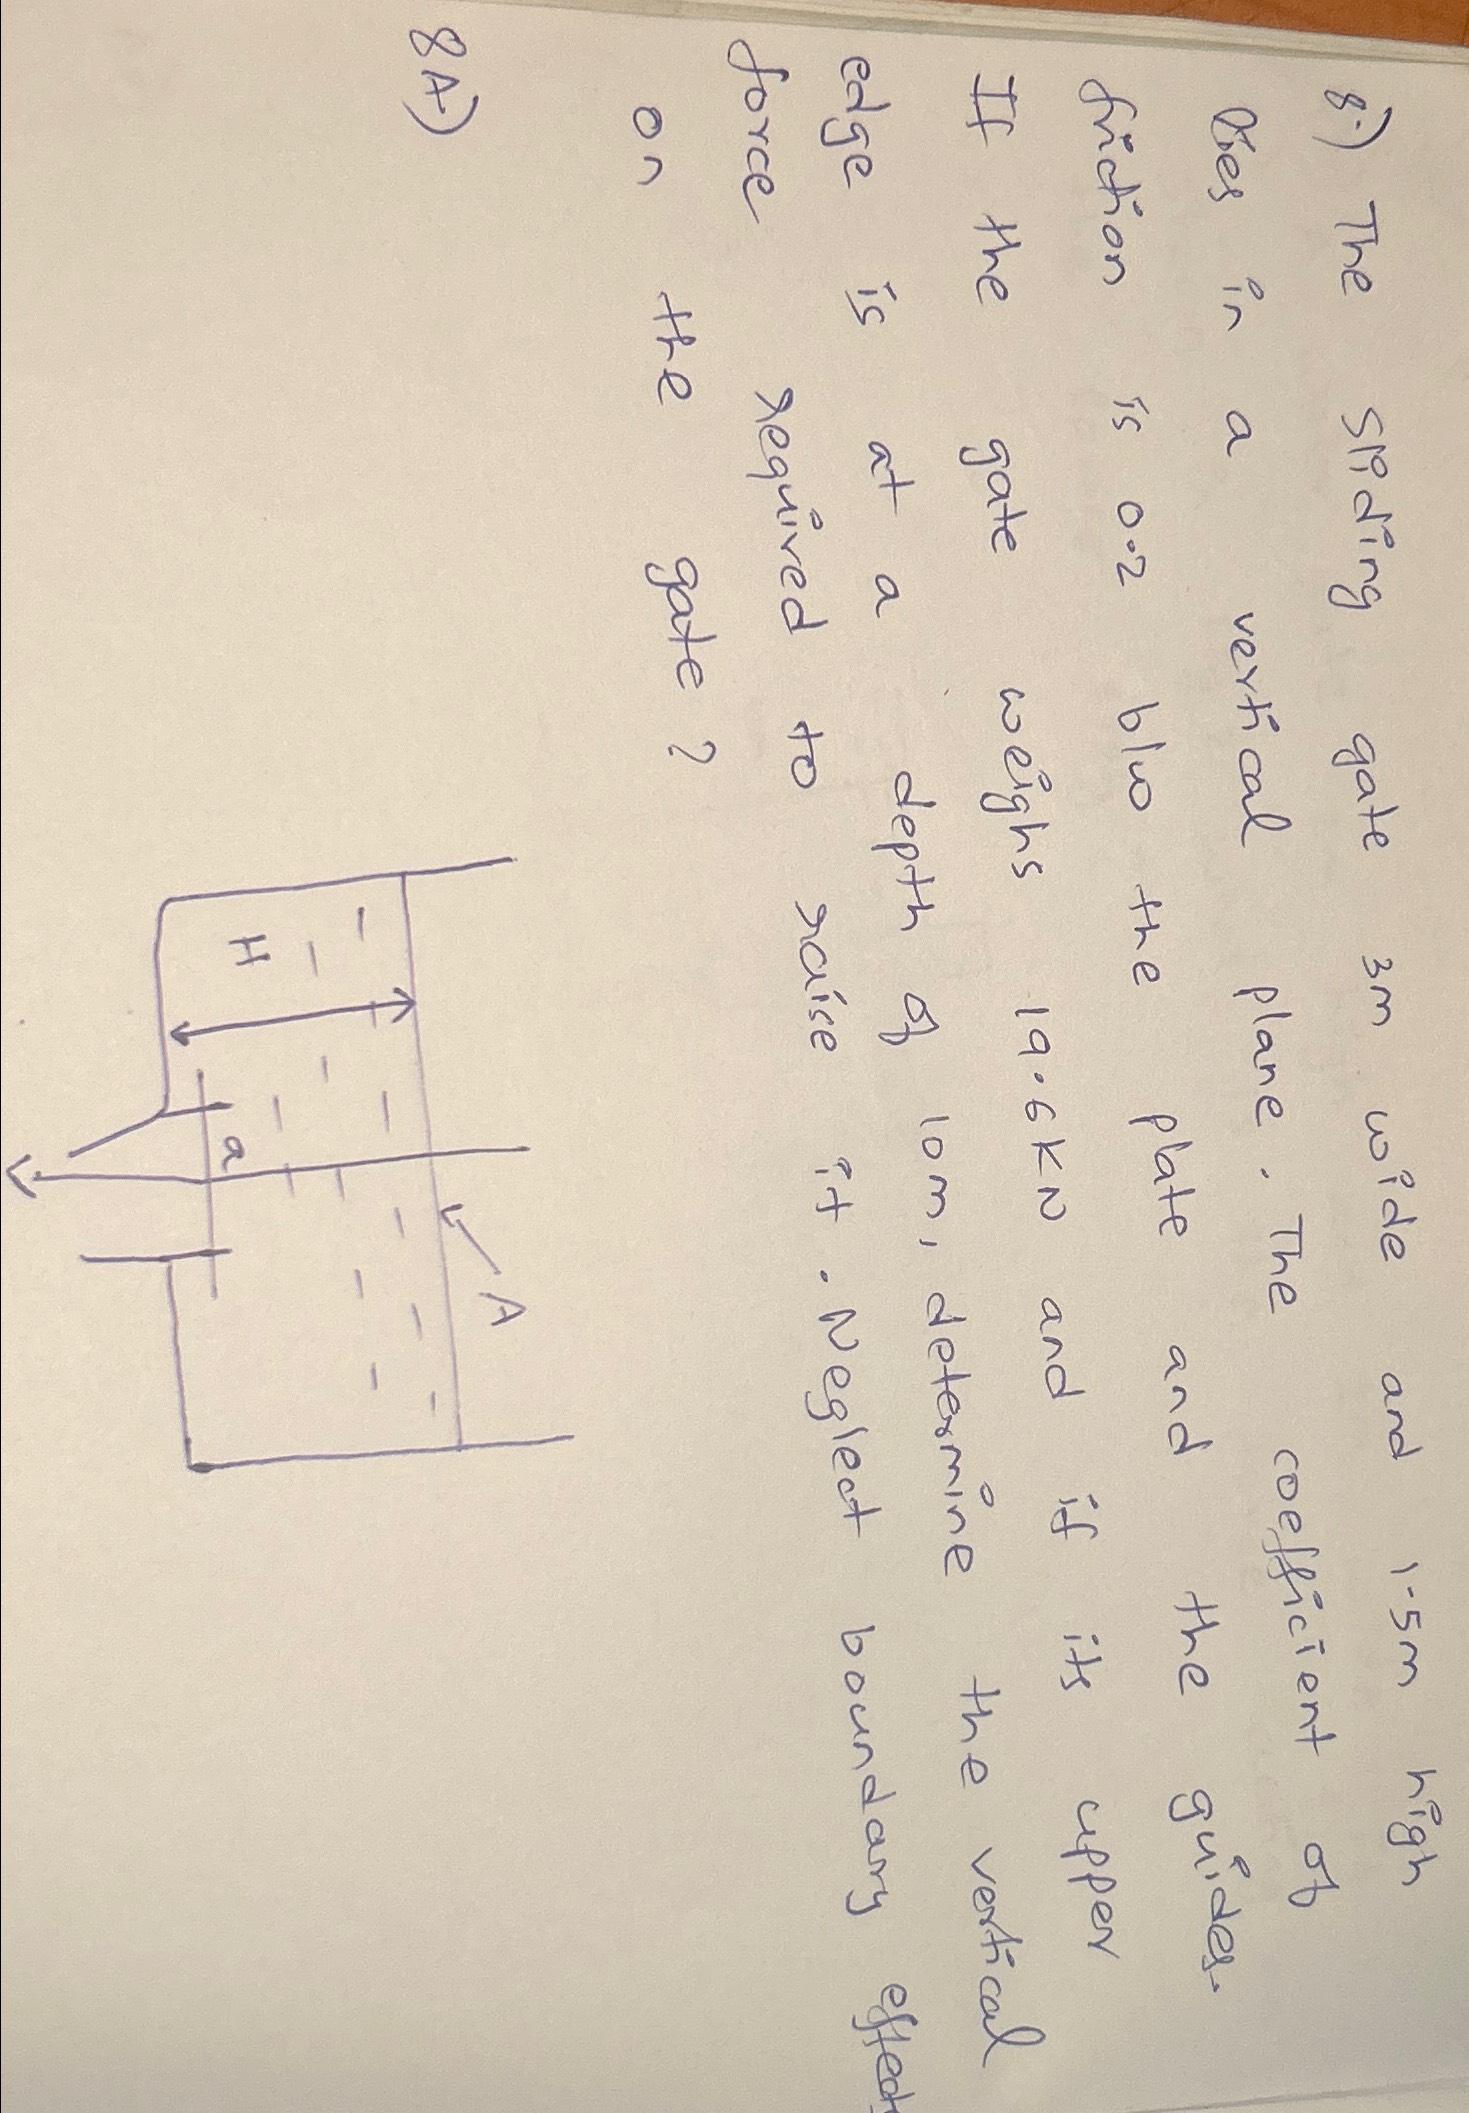 8.) The sliding gate 3m wide and 1.5m high
lies in a vertical plane. The coefficient of
friction is 0.2 b/w the plate and the guides.
If the gate weighs 19.6KN and if its upper
edge is at a depth of 10m, determine the vertical
force required to raise it. Neglect boundary effect
on the gate?
8A)
A
H
a